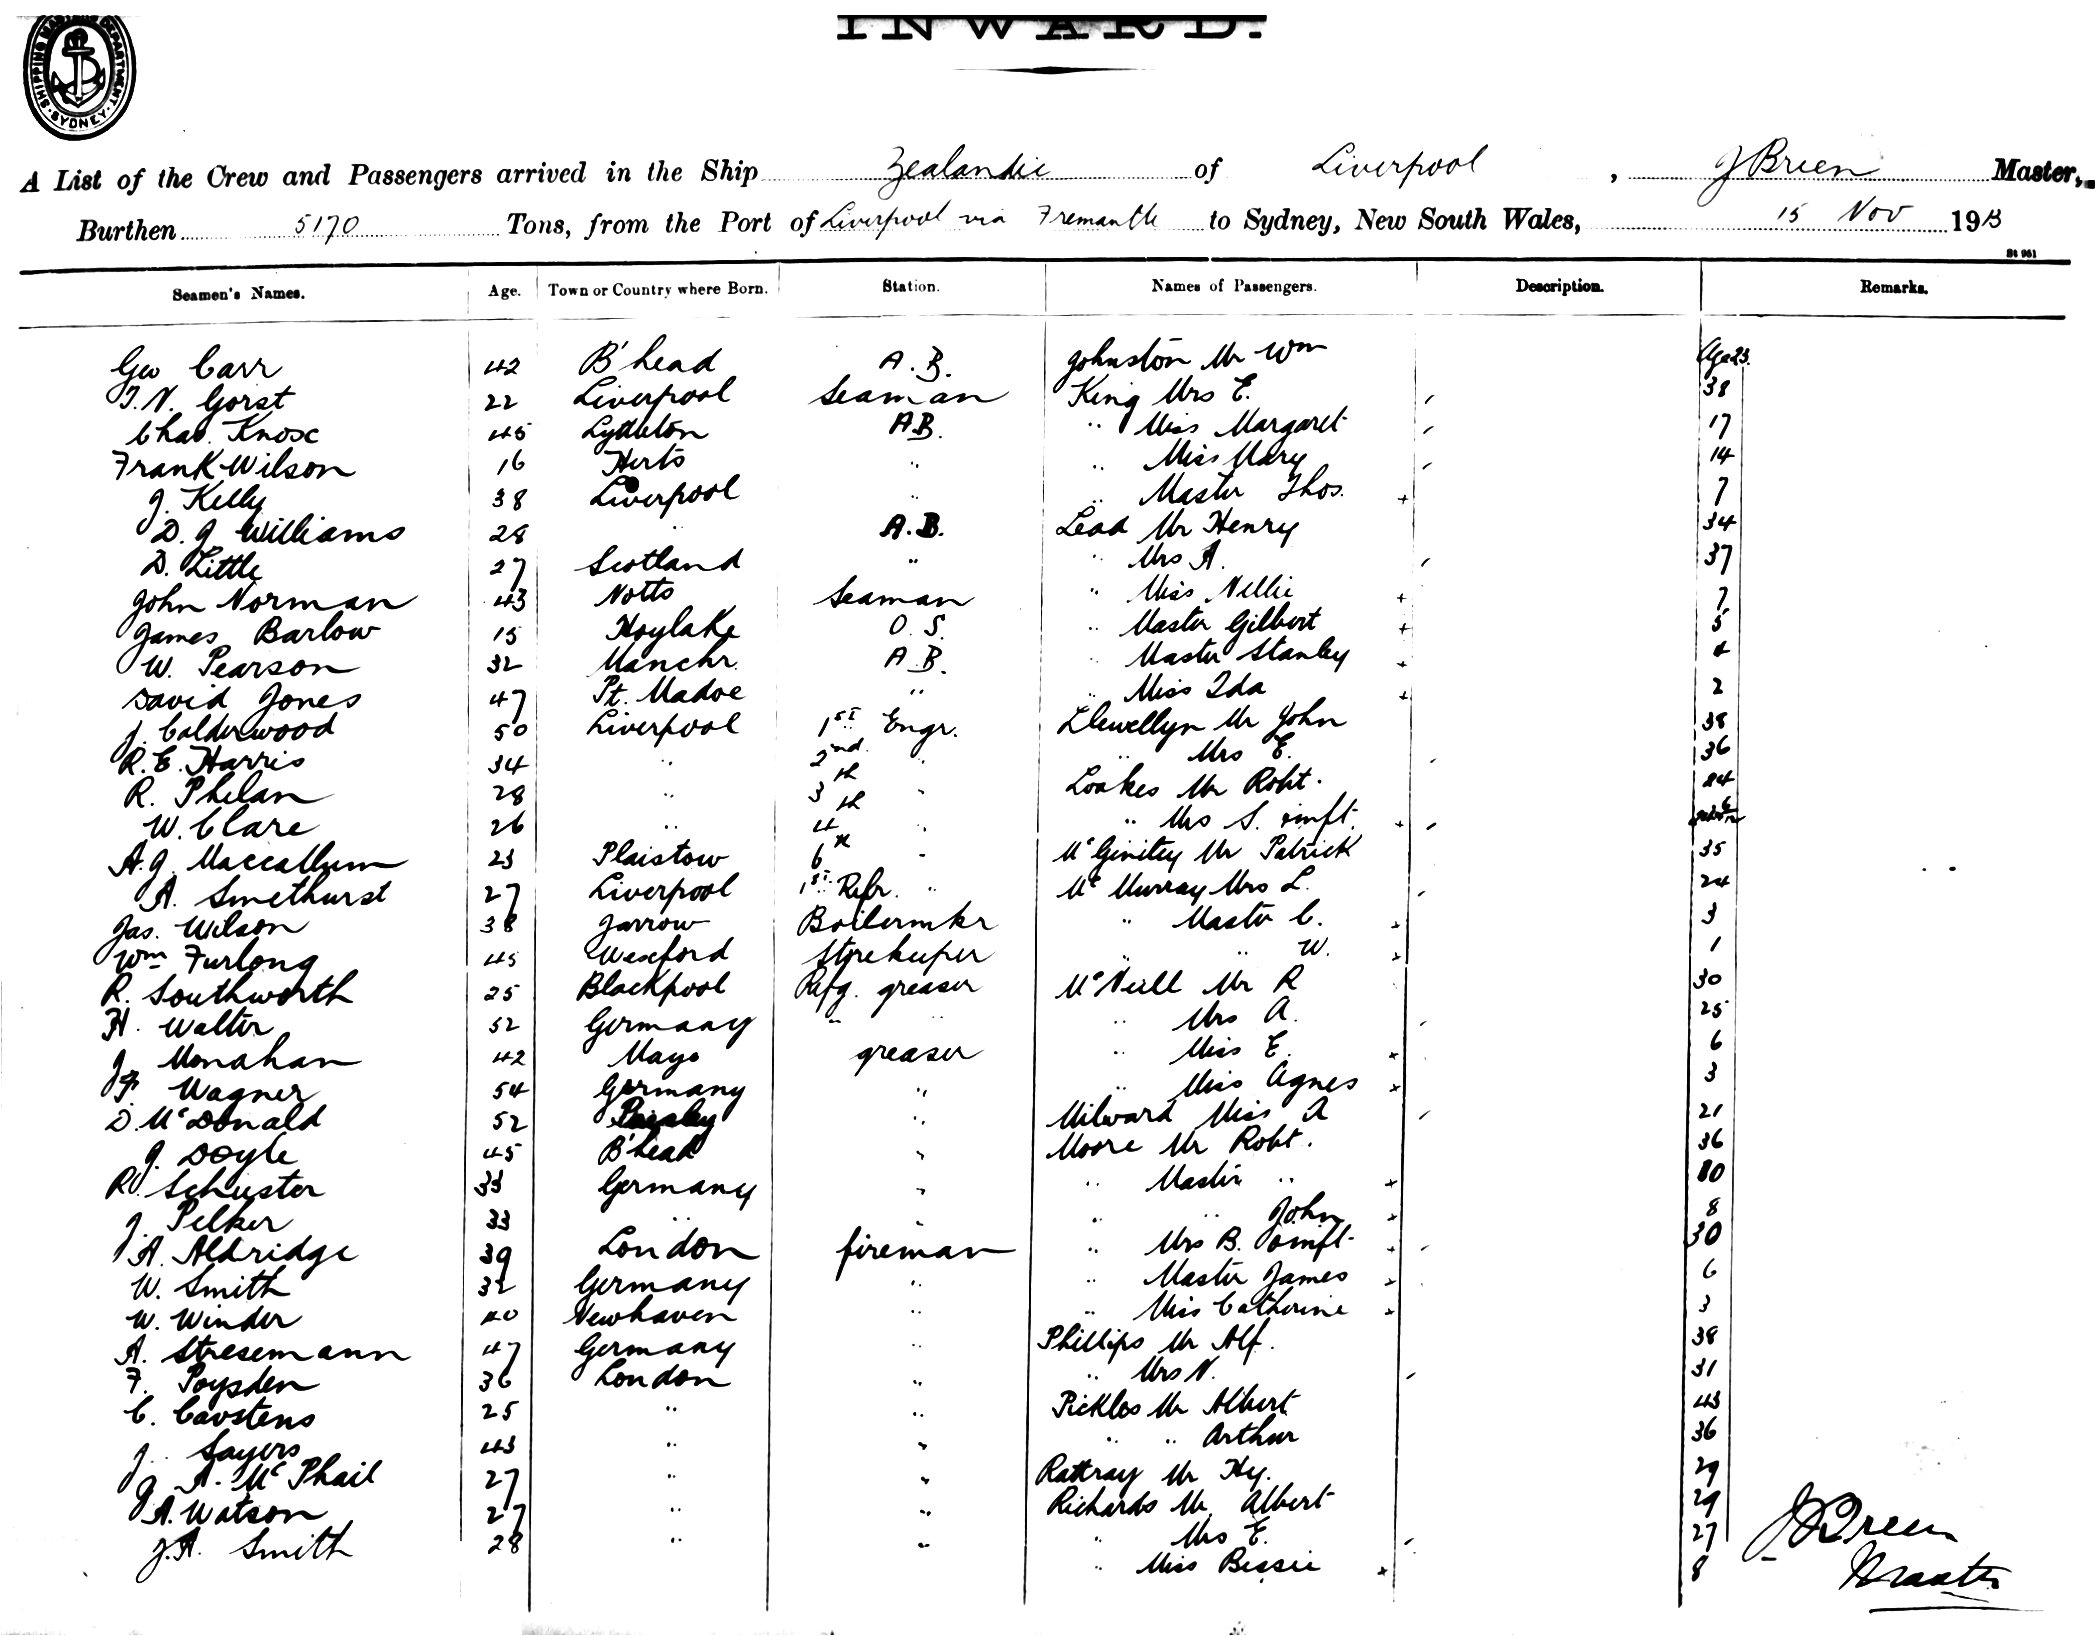 SHIPPING MASTERS DEPARTMENT. SYDNEY
INWARD.
A List of the Crew and Passengers arrived in the Ship Zealandic of Liverpool, J Breen Master,
Burthen 5170 Tons, from the Port of Liverpool via Fremantle to Sydney, New South Wales, 15 Nov 1913
St 961
Seamen's Names. Age. Town or Country where Born. Station. Names of Passengers. Description. Remarks.
Geo Carr 42 B'head A.B. Johnston Mr Wm Age 23.
T.N. Gorst 22 Liverpool Seaman King Mrs E. 38
Chas. Knox 45 Lyttleton A.B. " Miss Margaret 17
Frank Wilson 16 Herts " " Miss Mary 14
J. Kelly 38 Liverpool " " Master Thos. 7
D. J. Williams 28 " A.B. Lead Mr Henry 34
D. Little 27 Scotland " " Mrs A. 37
John Norman 43 Notts Seaman " Miss Nellie 7
James Barlow 15 Hoylake O.S. " Master Gilbert 5
W. Pearson 32 Manchr. A.B. " Master Stanley 4
David Jones 47 Pt. Madoc " " Miss Ida 2
J. Calderwood 50 Liverpool 1st Engr. Llewellyn Mr John 38
R.E. Harris 34 " 2nd " " Mrs E. 36
R. Phelan 28 " 3th " Loakes Mr Robt. 24
W. Clare 26 " 4th " " Mrs S. & inft.
A.J. Maccallum 23 Plaistow 6th " McGinitey Mr Patrick 35
A. Smethurst 27 Liverpool 1st Refr. " McMurray Mrs L. 24
Jas. Wilson 38 Jarrow Boilermkr " Master C. 3
Wm Furlong 45 Wexford Storekeeper " " W. 1
R. Southworth 25 Blackpool Refg. greaser McNeill Mr R 30
H. Walter 52 Germany " " " Mrs A. 25
J. Monahan 42 Mayo greaser " Miss E. 6
F. Wagner 54 Germany " " Miss Agnes 3
D. McDonald 52 Paisley " Milward Miss A 21
J. Doyle 45 B'head " Moore Mr Robt. 36
R. Schuster 33 Germany " " Master " 10
J. Pelker 33 " " " " John 8
A. Aldridge 39 London fireman " Mrs B. & inft. 30
W. Smith 32 Germany " " Master James 6
W. Winder 40 Newhaven " " Miss Catherine 3
A. Stresemann 47 Germany " Phillips Mr Alf. 38
F. Poysden 36 London " " Mrs N. 31
C. Carstens 25 " " Pickles Mr Albert 43
J. Sayers 43 " " " " Arthur 36
J. A. McPhail 27 " " Rattray Mr Hy. 29
A. Watson 27 " " Richards Mr Albert 29
J.A. Smith 28 " " " Mrs E. 27
" Miss Bessie 8
J Breen
Master